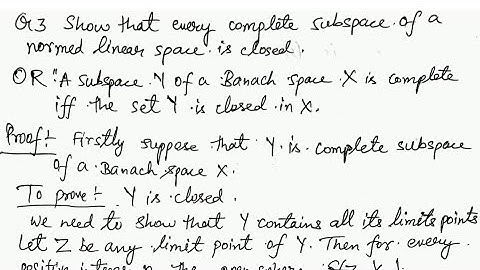 Q.3 Show that every complete subspace of a
normed linear space is closed.
OR: "A subspace Y of a Banach space X is complete
iff the set Y is closed in X.
Proof:- Firstly suppose that Y is complete subspace
of a Banach space X.
To prove:- Y is closed.
We need to show that Y contains all its limits points
Let Z be any limit point of Y. Then for every
positive integer n the open sphere